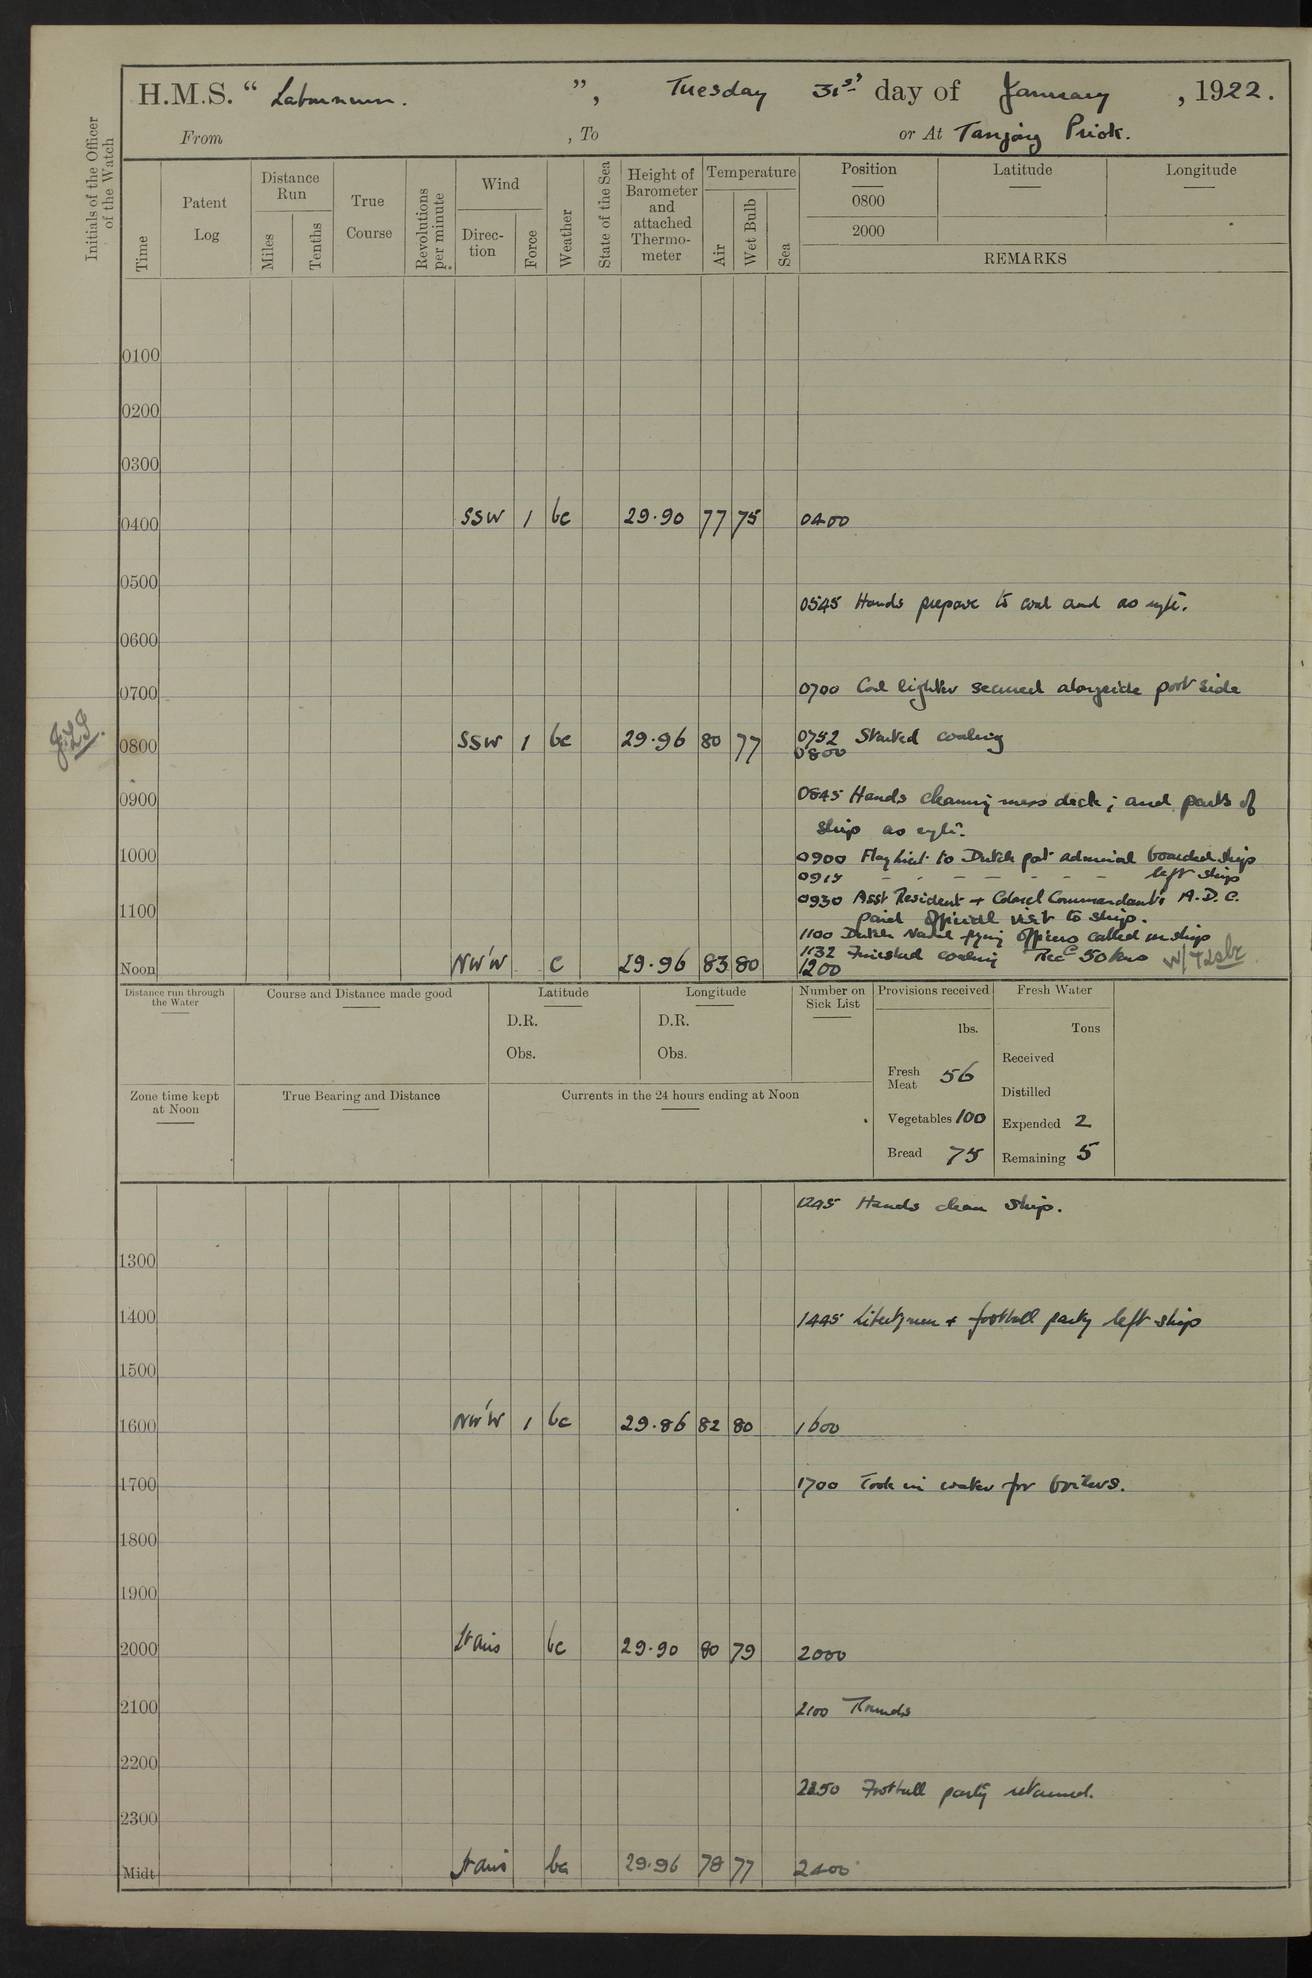 H.M.S. “ Laburnum. ”, Tuesday 31st day of January , 1922.
From , To or At Tanjong Priok.
Initials of the Officer of the Watch
Time
Patent Log
Distance Run
Miles
Tenths
True Course
Revolutions per minute
Wind
Direc-tion
Force
Weather
State of the Sea
Height of Barometer and attached Thermo-meter
Temperature
Air
Wet Bulb
Sea
Position
0800
2000
Latitude
Longitude
REMARKS
0100
0200
0300
0400 SSW 1 bc 29.90 77 75 0400
0500
0545 Hands prepare to coal and as reqte.
0600
0700 0700 Coal lighter secured alongside port side
0800 SSW 1 bc 29.96 80 77 0752 Started coaling
0800
0900 0845 Hands cleaning mess deck ; and parts of
ship as reqte.
1000 0900 Flag Lieut. to Dutch port admiral boarded ship
0915 - - - - - - - left ship
0930 Asst Resident + Colonel Commandant's A.D.C.
1100 paid official visit to ship.
1100 Dutch Naval flying officers called on ship
1132 Finished coaling Recd 50 tons
Noon NW'W C 29.96 83 80 1200
Distance run through the Water
Course and Distance made good
Latitude
D.R.
Obs.
Longitude
D.R.
Obs.
Number on Sick List
Provisions received
lbs.
Fresh Meat 56
Vegetables 100
Bread 75
Fresh Water
Tons
Received
Distilled
Expended 2
Remaining 5
Zone time kept at Noon
True Bearing and Distance
Currents in the 24 hours ending at Noon
1245 Hands clean ship.
1300
1400 1445 Libertymen + football party left ship
1500
1600 NW'W 1 bc 29.86 82 80 1600
1700 1700 Took in water for boilers.
1800
1900
2000 Lt airs bc 29.90 80 79 2000
2100 2100 Rounds
2200
2250 Football party returned.
2300
Midt Lt airs bc 29.96 78 77 2400